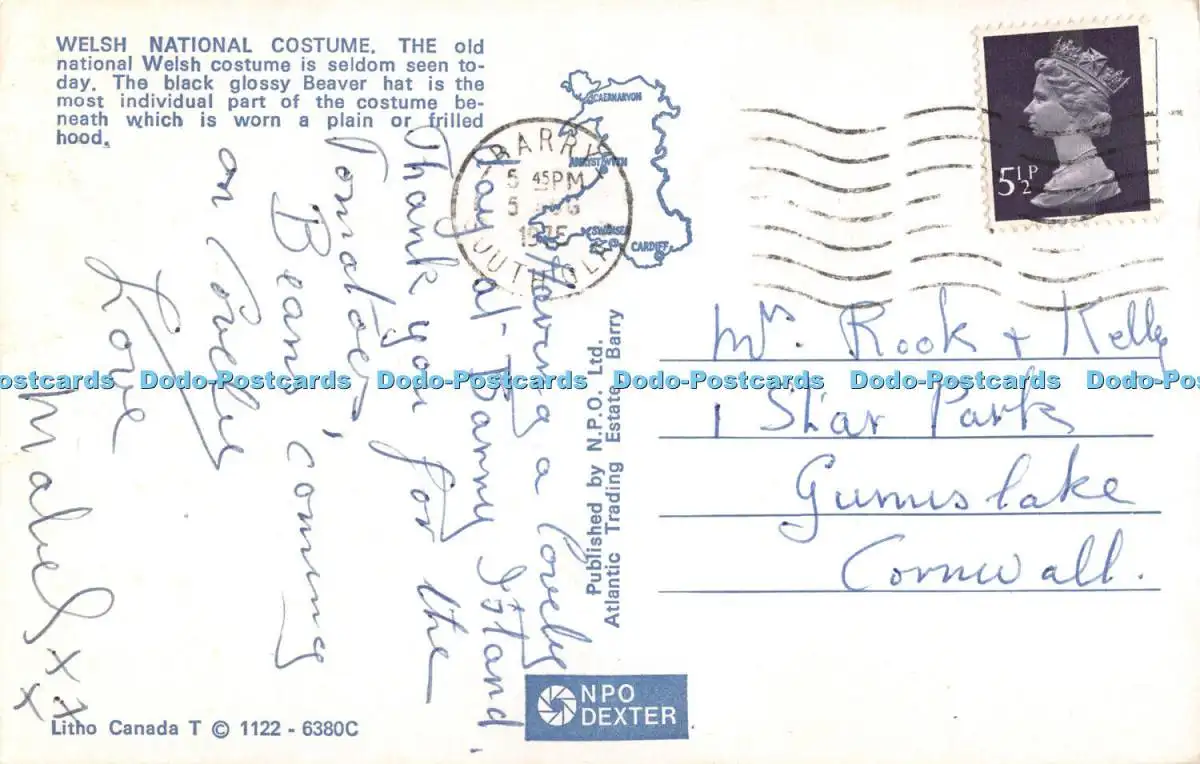 WELSH NATIONAL COSTUME. THE old
national Welsh costume is seldom seen to-
day. The black glossy Beaver hat is the
most individual part of the costume be-
neath which is worn a plain or frilled
hood.
Having a lovely
day at Barry Island.
Thank you for the
Tomatoes,
Beans, coming
on lovely
Love
Mabel x x
x
CAERNARVON
ABERYSTWYTH
SWANSEA
CARDIFF
BARRY
5 45PM
5 AUG
1975
SOUTH GLAM
5½P
Mrs. Rook + Kelly
1 Star Park
Gunnislake
Cornwall.
Published by N.P.O. Ltd.
Atlantic Trading Estate Barry
NPO
DEXTER
Litho Canada T © 1122 - 6380C
Dodo-Postcards Dodo-Postcards Dodo-Postcards Dodo-Postcards Dodo-Postcards